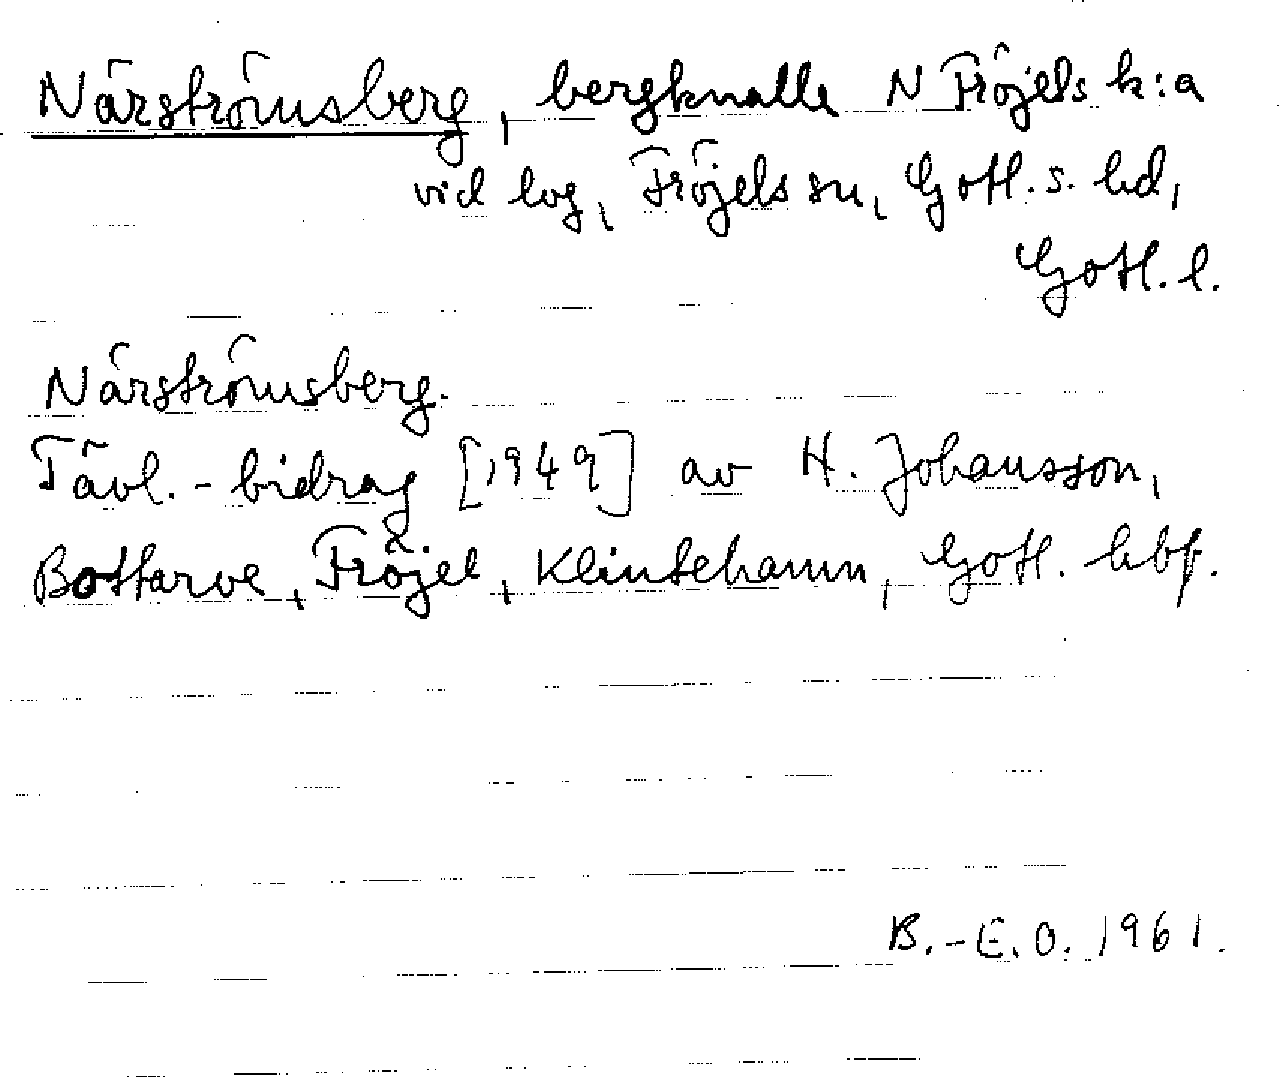 Närströmsberg, bergknalle N Fröjels k:a
vid log, Fröjels sn, Gotl. s. hd,
Gotl. l.
Närströmsberg.
Tävl.-bidrag [1949] av H. Johansson,
Bottarve, Fröjel, Klintehamn, Gotl. hbf.
B.-E.O. 1961.